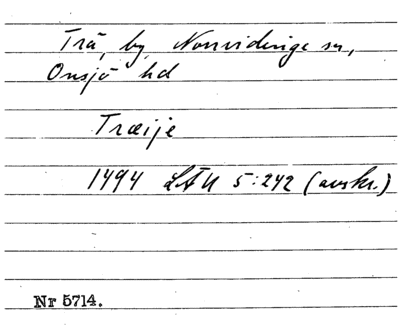 Trä, by, Norrvidinge sn,
Onsjö hd
Træije
1494 LÄU 5:242 (avskr.)
Nr 5714.